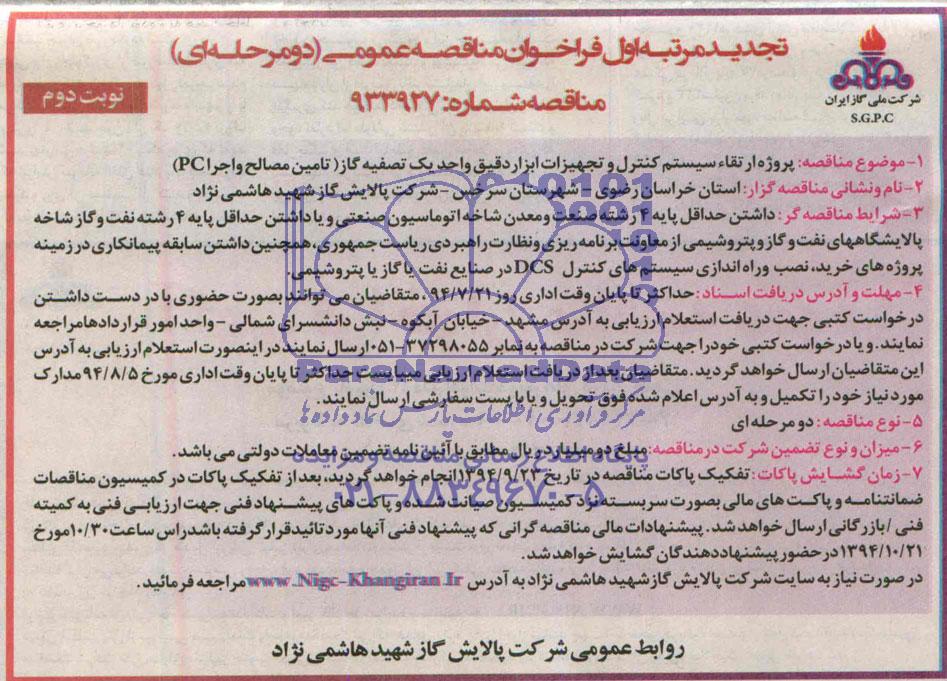 تجدید مرتبه اول فراخوان مناقصه عمومی (دو مرحله ای)
مناقصه شماره: ۹۳۳۹۲۷
نوبت دوم
شرکت ملی گاز ایران
S.G.P.C
۱- موضوع مناقصه: پروژه ارتقاء سیستم کنترل و تجهیزات ابزار دقیق واحد یک تصفیه گاز( تامین مصالح و اجرا PC)
۲- نام و نشانی مناقصه گزار: استان خراسان رضوی - شهرستان سرخس - شرکت پالایش گاز شهید هاشمی نژاد
۳- شرایط مناقصه گر: داشتن حداقل پایه ۴ رشته صنعت و معدن شاخه اتوماسیون صنعتی و یا داشتن حداقل پایه ۴ رشته نفت و گاز شاخه
پالایشگاههای نفت و گاز و پتروشیمی از معاونت برنامه ریزی و نظارت راهبردی ریاست جمهوری، همچنین داشتن سابقه پیمانکاری در زمینه
پروژه های خرید، نصب و راه اندازی سیستم های کنترل DCS در صنایع نفت یا گاز یا پتروشیمی.
۴- مهلت و آدرس دریافت اسناد: حداکثر تا پایان وقت اداری روز ۹۴/۷/۲۱، متقاضیان می توانند بصورت حضوری با در دست داشتن
درخواست کتبی جهت دریافت استعلام ارزیابی به آدرس مشهد - خیابان آبکوه - نبش دانشسرای شمالی - واحد امور قراردادها مراجعه
نمایند. و یا درخواست کتبی خود را جهت شرکت در مناقصه به نمابر ۳۷۲۹۸۰۵۵-۰۵۱ ارسال نمایند در اینصورت استعلام ارزیابی به آدرس
این متقاضیان ارسال خواهد گردید. متقاضیان بعد از دریافت استعلام ارزیابی میبایست حداکثر تا پایان وقت اداری مورخ ۹۴/۸/۵ مدارک
مورد نیاز خود را تکمیل و به آدرس اعلام شده فوق تحویل و یا با پست سفارشی ارسال نمایند.
۵- نوع مناقصه: دو مرحله ای
۶- میزان و نوع تضمین شرکت در مناقصه: مبلغ دو میلیارد ریال مطابق با آئین نامه تضمین معاملات دولتی می باشد.
۷- زمان گشایش پاکات: تفکیک پاکات مناقصه در تاریخ ۱۳۹۴/۹/۲۲ انجام خواهد گردید، بعد از تفکیک پاکات در کمیسیون مناقصات
ضمانتنامه و پاکت های مالی بصورت سربسته نزد کمیسیون صیانت شده و پاکت های پیشنهاد فنی جهت ارزیابی فنی به کمیته
فنی / بازرگانی ارسال خواهد شد. پیشنهادات مالی مناقصه گرانی که پیشنهاد فنی آنها مورد تائید قرار گرفته باشد راس ساعت ۱۰/۳۰ مورخ
۱۳۹۴/۱۰/۲۱ در حضور پیشنهاد دهندگان گشایش خواهد شد.
در صورت نیاز به سایت شرکت پالایش گاز شهید هاشمی نژاد به آدرس www.Nigc-Khangiran.Ir مراجعه فرمائید.
روابط عمومی شرکت پالایش گاز شهید هاشمی نژاد
ParsNamadData
مرکز فرآوری اطلاعات پارس نماد داده ها
۰۲۱-۸۸۳۴۹۶۷۰-۵